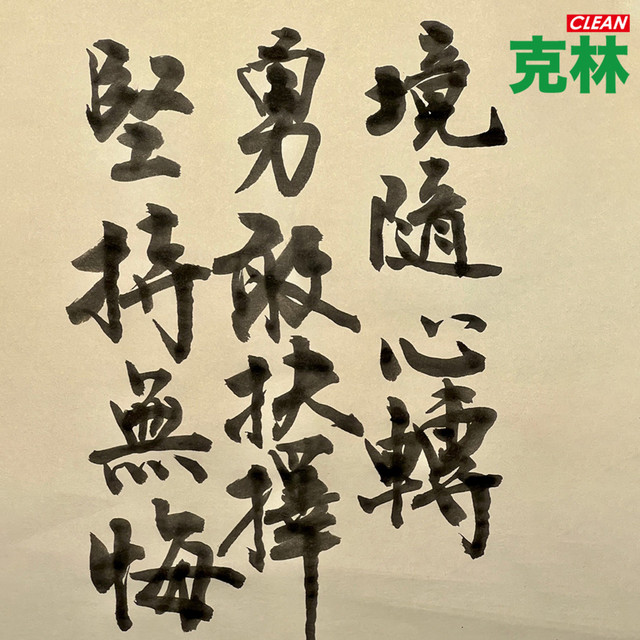 CLEAN
克林
境隨心轉
勇敢扶擇
堅持無悔